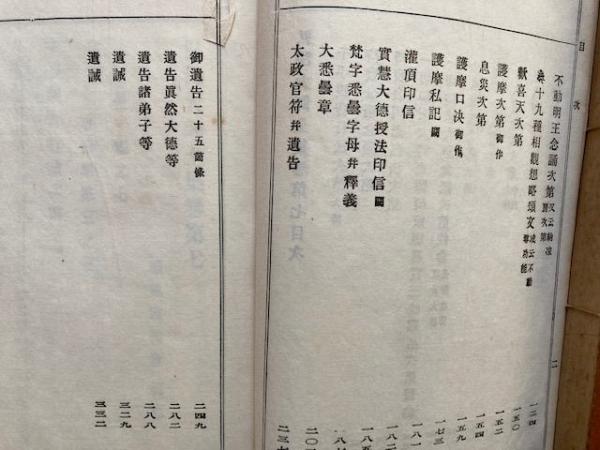 目次
二
不動明王念誦次第 一二四
十九種相觀想略頌文 一五〇
歡喜天次第 一五二
護摩次第 御作 一五四
息災次第 一五九
護摩口決 御傳 一七三
護摩私記 闕 一八
灌頂印信 一八
實慧大德授法印信 闕 一八
梵字悉曇字母幷釋義 一八
大悉曇章 二〇
太政官符幷遺告 二三
御遺告 二十五箇條 二四九
遺告眞然大德等 二八二
遺告諸弟子等 二八八
遺誡 三二九
遺誡 三三二